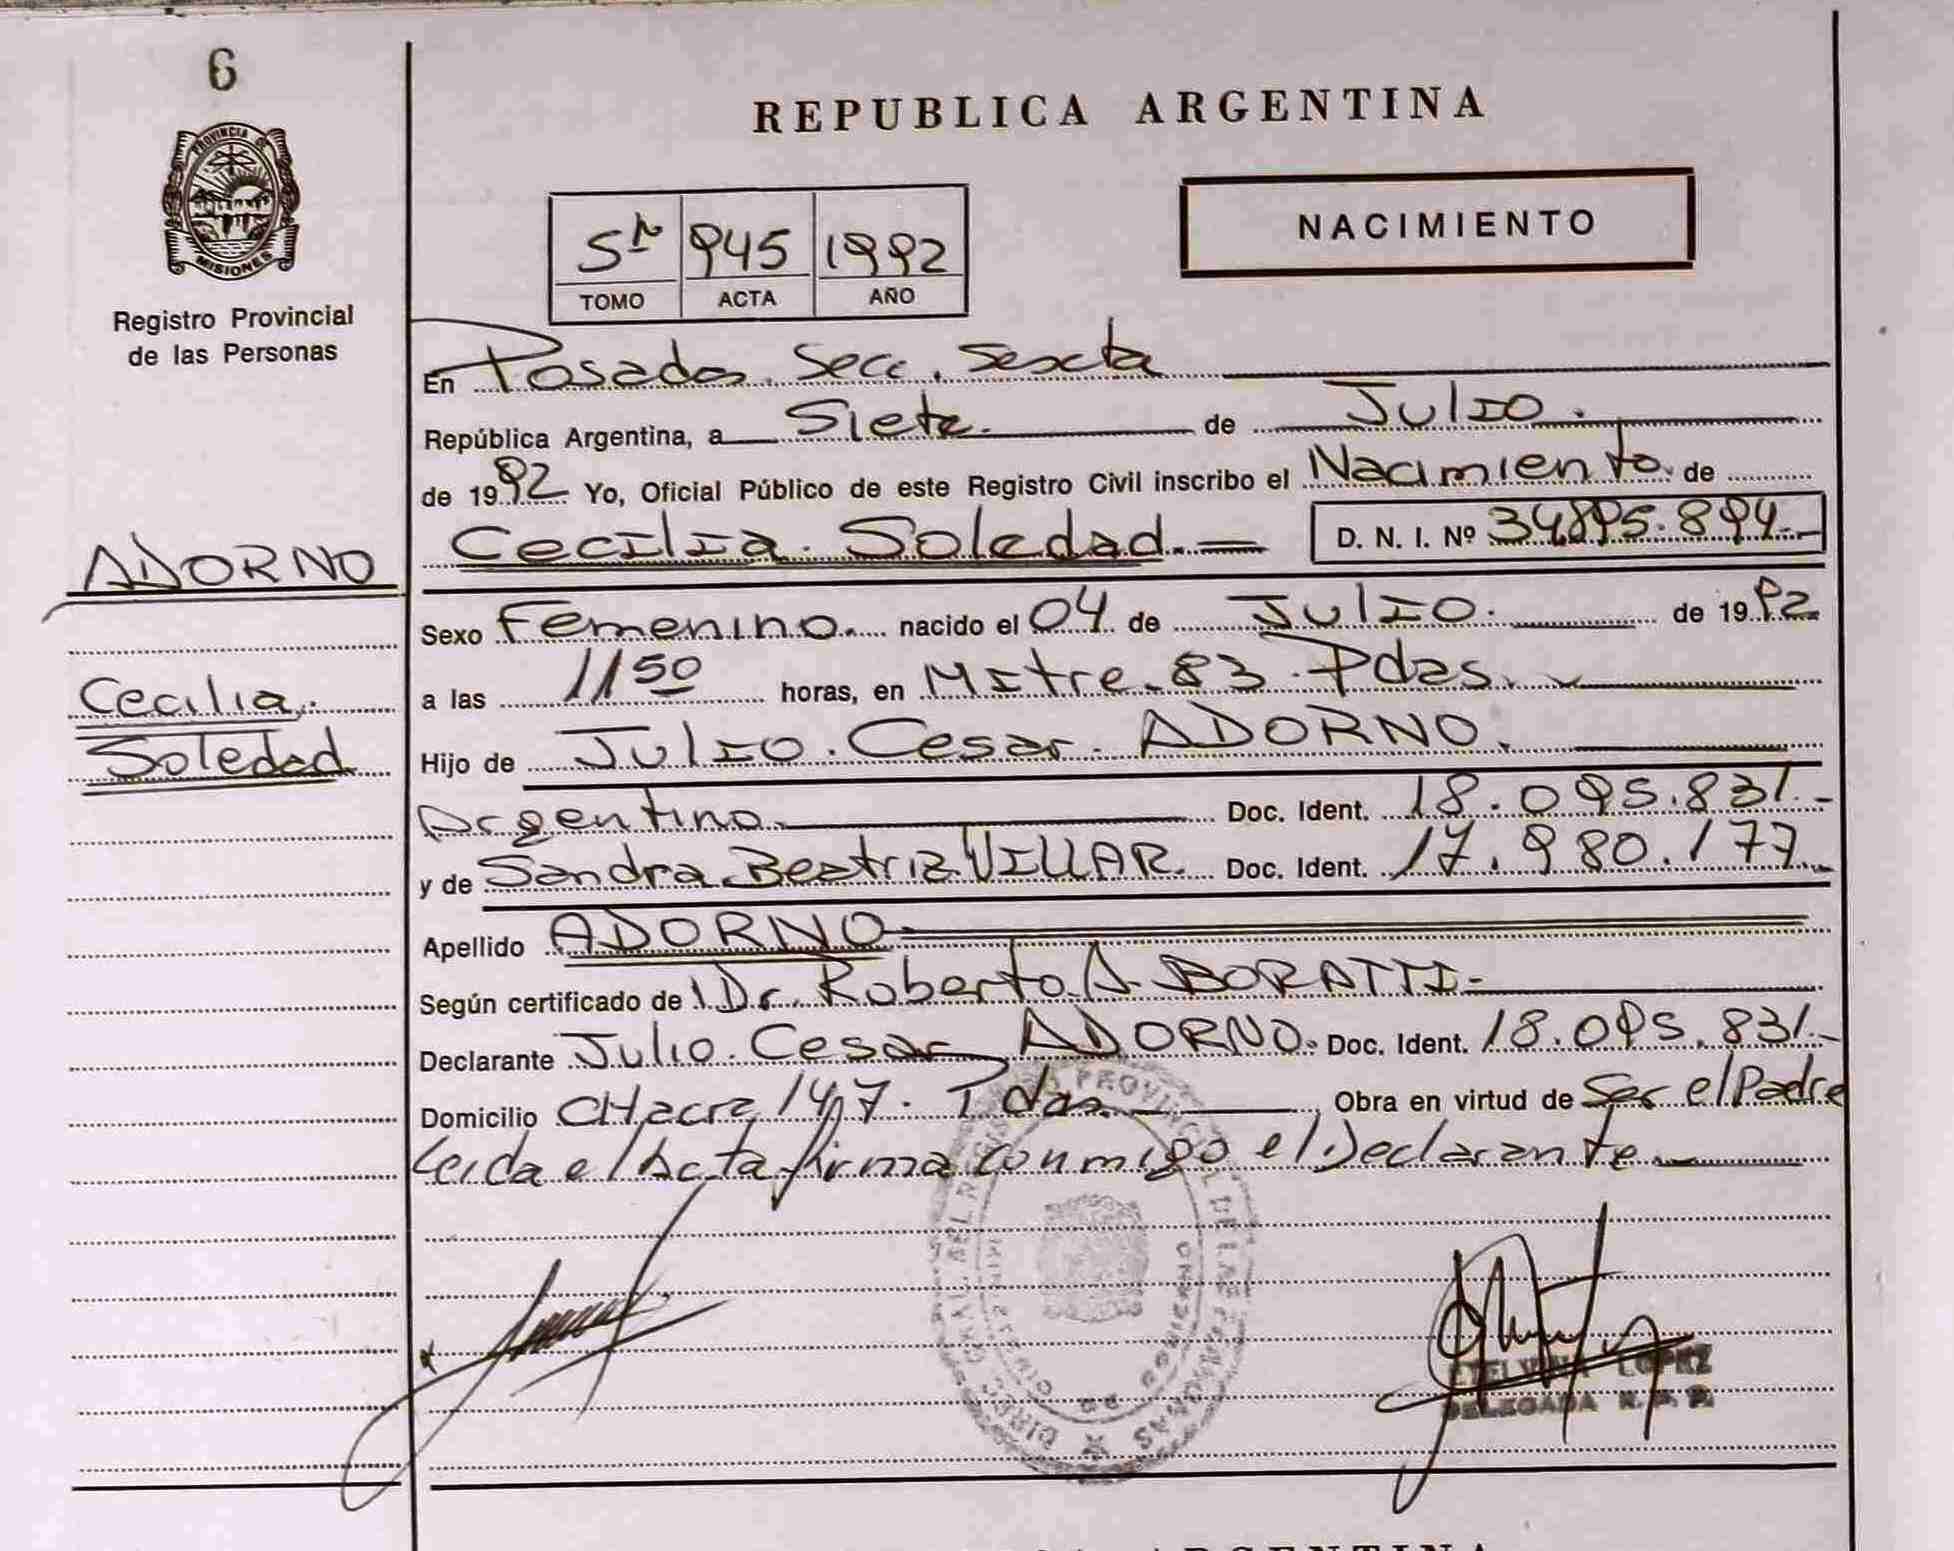 6
PROVINCIA DE
MISIONES
Registro Provincial
de las Personas
REPUBLICA ARGENTINA
NACIMIENTO
945 1992
TOMO ACTA AÑO
En Posadas. Secc. Sexta
República Argentina, a Siete. de Julio.
de 1992 Yo, Oficial Público de este Registro Civil inscribo el Nacimiento. de
ADORNO
Cecilia. Soledad. D. N. I. Nº 34.895.894.-
Sexo Femenino. nacido el 04 de Julio. de 1992
Cecilia.
a las 11 50 horas, en Mitre. 83. Pdas.
Soledad
Hijo de Julio. Cesar. ADORNO.
Argentino. Doc. Ident. 18.095.831.-
y de Sandra Beatriz VILLAR. Doc. Ident. 17.980.177.-
Apellido ADORNO
Según certificado de Dr. Roberto A. BORATTI-
Declarante Julio. Cesar ADORNO. Doc. Ident. 18.095.831.-
Domicilio CHacra 147. Pdas. Obra en virtud de Ser el Padre
Leida el Acta firma conmigo el Declarante
ETELVINA LOPEZ
DELEGADA R. P. P.
ARGENTINA